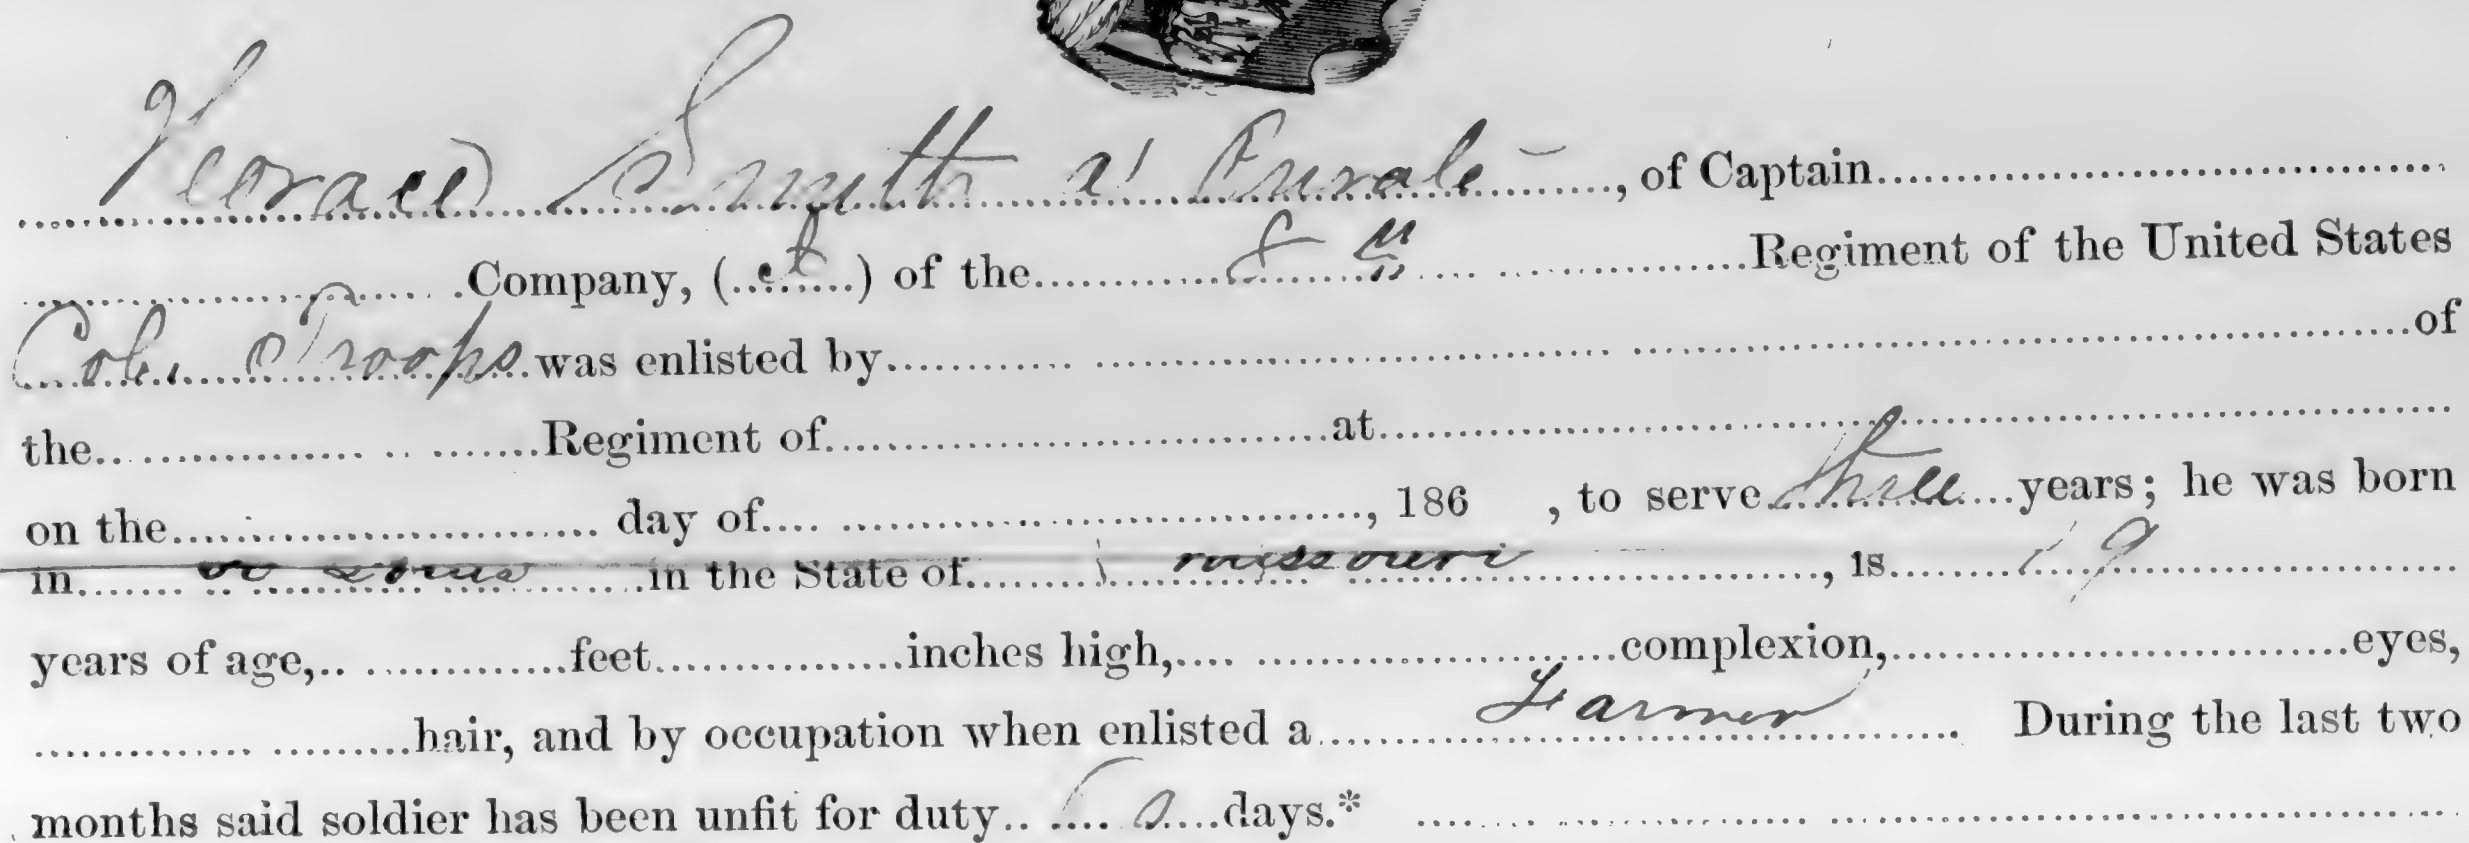 Horace Smith a Private, of Captain
Company, ( ) of the 8 " Regiment of the United States
Col. Troops was enlisted by of
the Regiment of at
on the day of , 186 , to serve three years; he was born
in in the State of missouri , is 19
years of age, feet inches high, complexion, eyes,
hair, and by occupation when enlisted a Farmer During the last two
months said soldier has been unfit for duty days.*